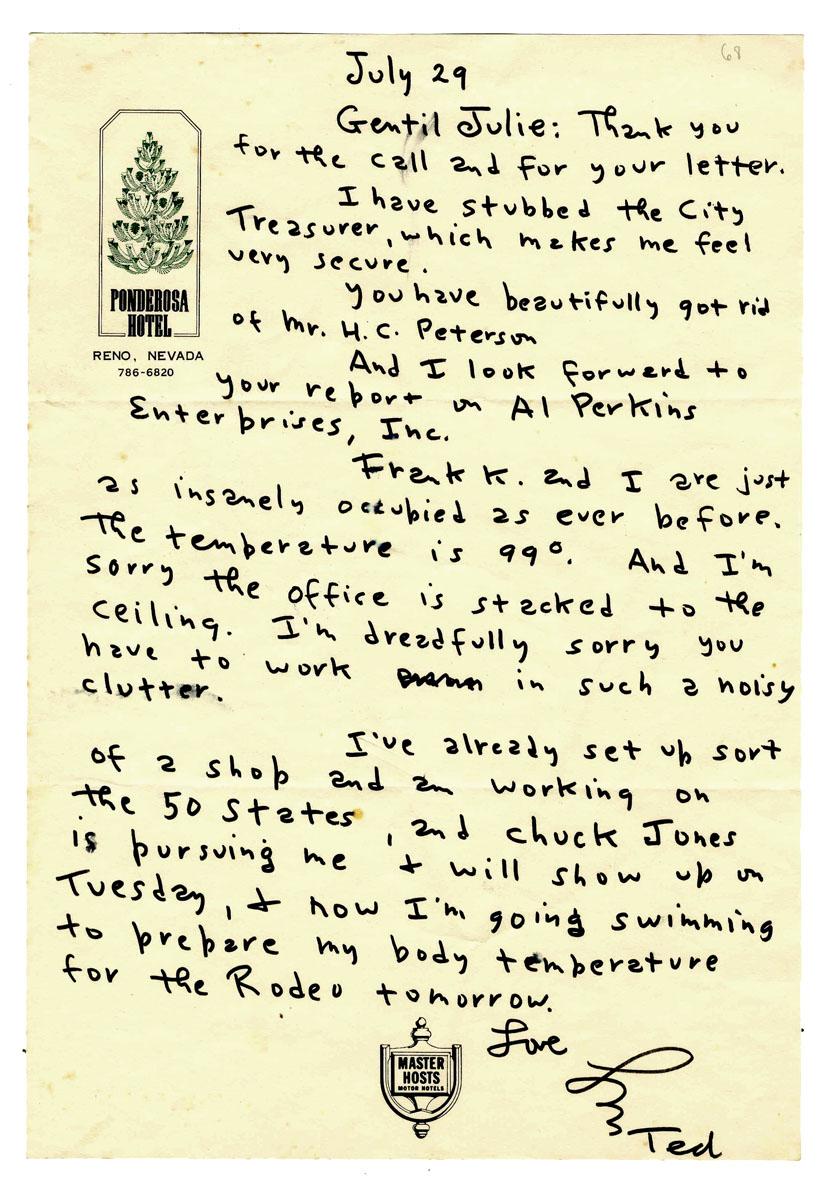 68
July 29
Gentil Julie: Thank you
for the call and for your letter.
I have stubbed the City
Treasurer, which makes me feel
very secure.
You have beautifully got rid
of Mr. H.C. Peterson
And I look forward to
your report on Al Perkins
Enterprises, Inc.
Frank K. and I are just
as insanely occupied as ever before.
The temperature is 99°. And I'm
sorry the office is stacked to the
ceiling. I'm dreadfully sorry you
have to work in such a noisy
clutter.
I've already set up sort
of a shop and am working on
the 50 States, and Chuck Jones
is pursuing me + will show up on
Tuesday, + now I'm going swimming
to prepare my body temperature
for the Rodeo tomorrow.
Love
Ted
PONDEROSA
HOTEL
RENO, NEVADA
786-6820
MASTER
HOSTS
MOTOR HOTELS